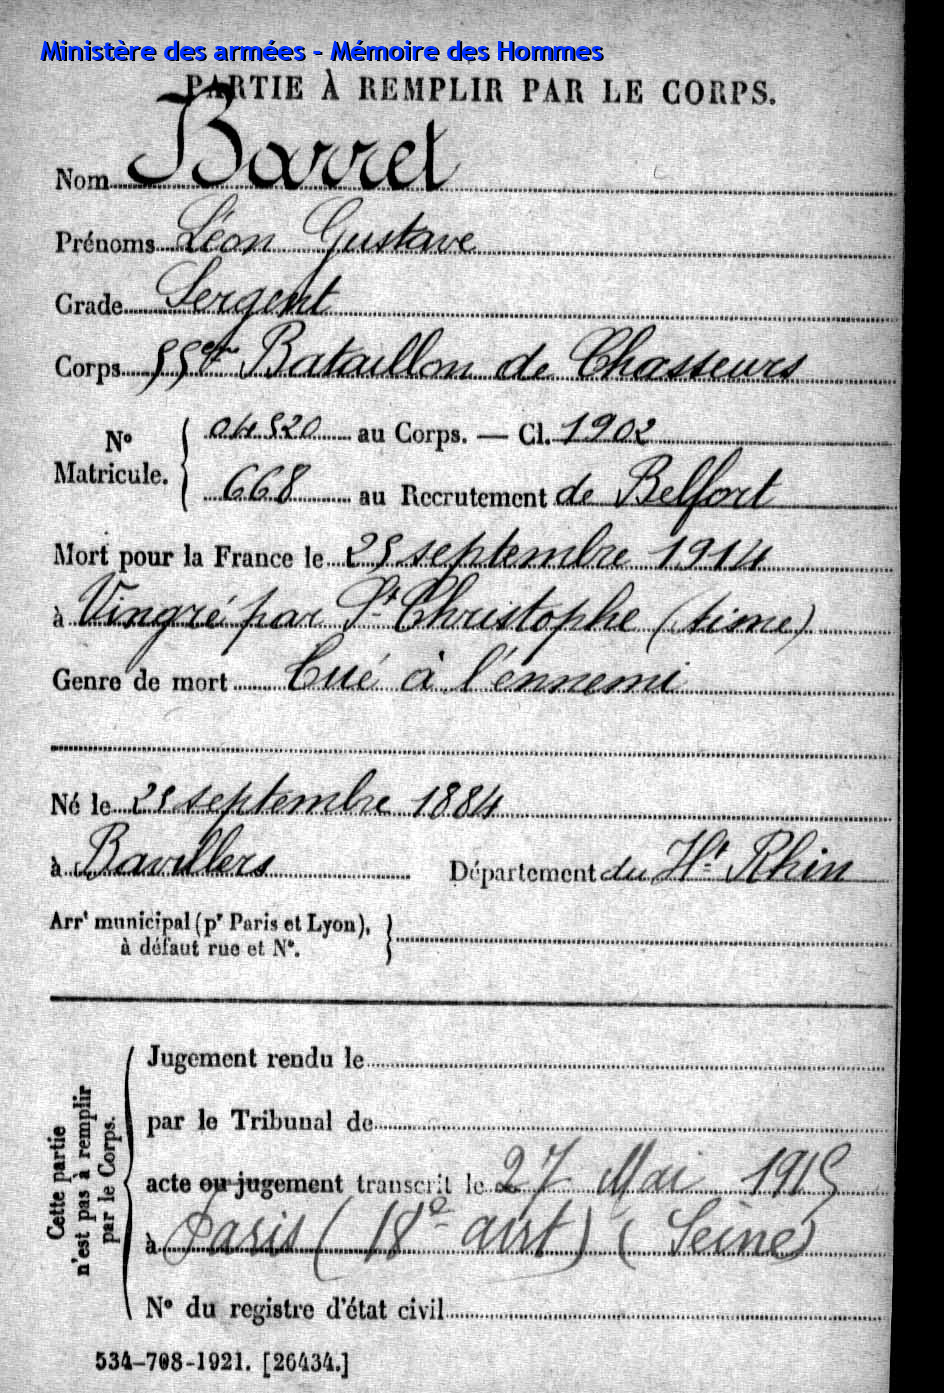 Ministère des armées - Mémoire des Hommes
PARTIE À REMPLIR PAR LE CORPS.
Nom Barret
Prénoms Léon Gustave
Grade Sergent
Corps 55e Bataillon de Chasseurs
N° Matricule. { 04520 au Corps. — Cl. 1902
668 au Recrutement de Belfort
Mort pour la France le 25 septembre 1914
à Vingré par St Christophe (Aisne)
Genre de mort Tué à l'ennemi
Né le 25 septembre 1884
à Bavillers Département du Ht Rhin
Arrt municipal (pr Paris et Lyon),
à défaut rue et N°.
Cette partie n'est pas à remplir par le Corps.
Jugement rendu le
par le Tribunal de
acte ou jugement transcrit le 27 Mai 1915
à Paris (18e arrt) (Seine)
N° du registre d'état civil
534-708-1921. [26434.]